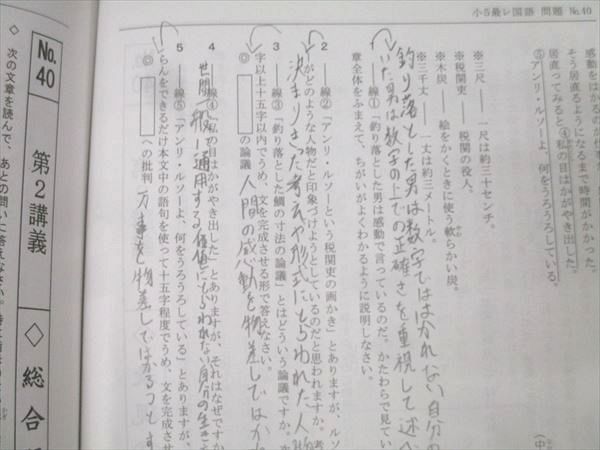 小5最レ国語 問題 №40
感動をはかるのが仕事
そう居直るようになるまで時間がかかった。
居直ってみると④私の目はかがやき出した。
⑤アンリ・ルソーよ、何をうろうろしている。
※三尺 ―― 一尺は約三十センチ。
※三千丈 ―― 一丈は約三メートル。
※税関吏 ―― 税関の役人。
※木炭 ―― 絵をかくときに使う軟らかい炭。
1 ――線①「釣り落とした男は感動で言っているのだ。かたわらで見てい
章全体をふまえて、ちがいがよくわかるように説明しなさい。
釣り落とした男は数字でははかれない自分の
いた男は数字の上での正確さを重視して述べ
2 ――線②「アンリ・ルソーという税関吏の画かき」とありますが、ルソ
がどのような人物だと印象づけようとしているのだと思われますか。考
決まりきった考えや形式にとらわれた人物
3 ――線③「釣り落とした鯛の寸法の論議」とはどういう論議ですか。
字以上十五字以内でうめ、文を完成させる形で答えなさい。
◎ の論議 人間の感動を物差しではか
4 ――線④「私の目はかがやき出した」とありますが、それはなぜですか
世間で広く通用する価値にとらわれない自分の生き
5 ――線⑤「アンリ・ルソーよ、何をうろうろしている」とありますが、
らんをできるだけ本文中の語句を使って十五字程度でうめ、文を完成させ
◎ への批判 万事を物差しではかろうとす
No.40 第2講義 ◇総合
次の文章を読んで、あとの問いに答えなさい。